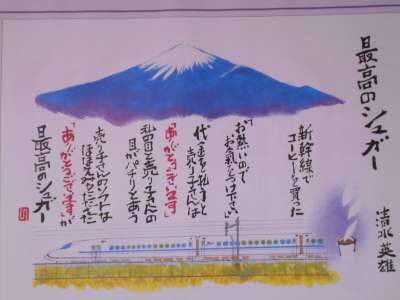 最高のシュガー
清水 英雄
新幹線で
コーヒーを買った
「お熱いので
お気をつけ下さい」
代金を払うと
売り子さんは
「ありがとうございます」
私の目と売り子さんの
目がパチリとあう
売り子さんのソフトな
ほほえみとたった
「ありがとうございます」が
最高のシュガー